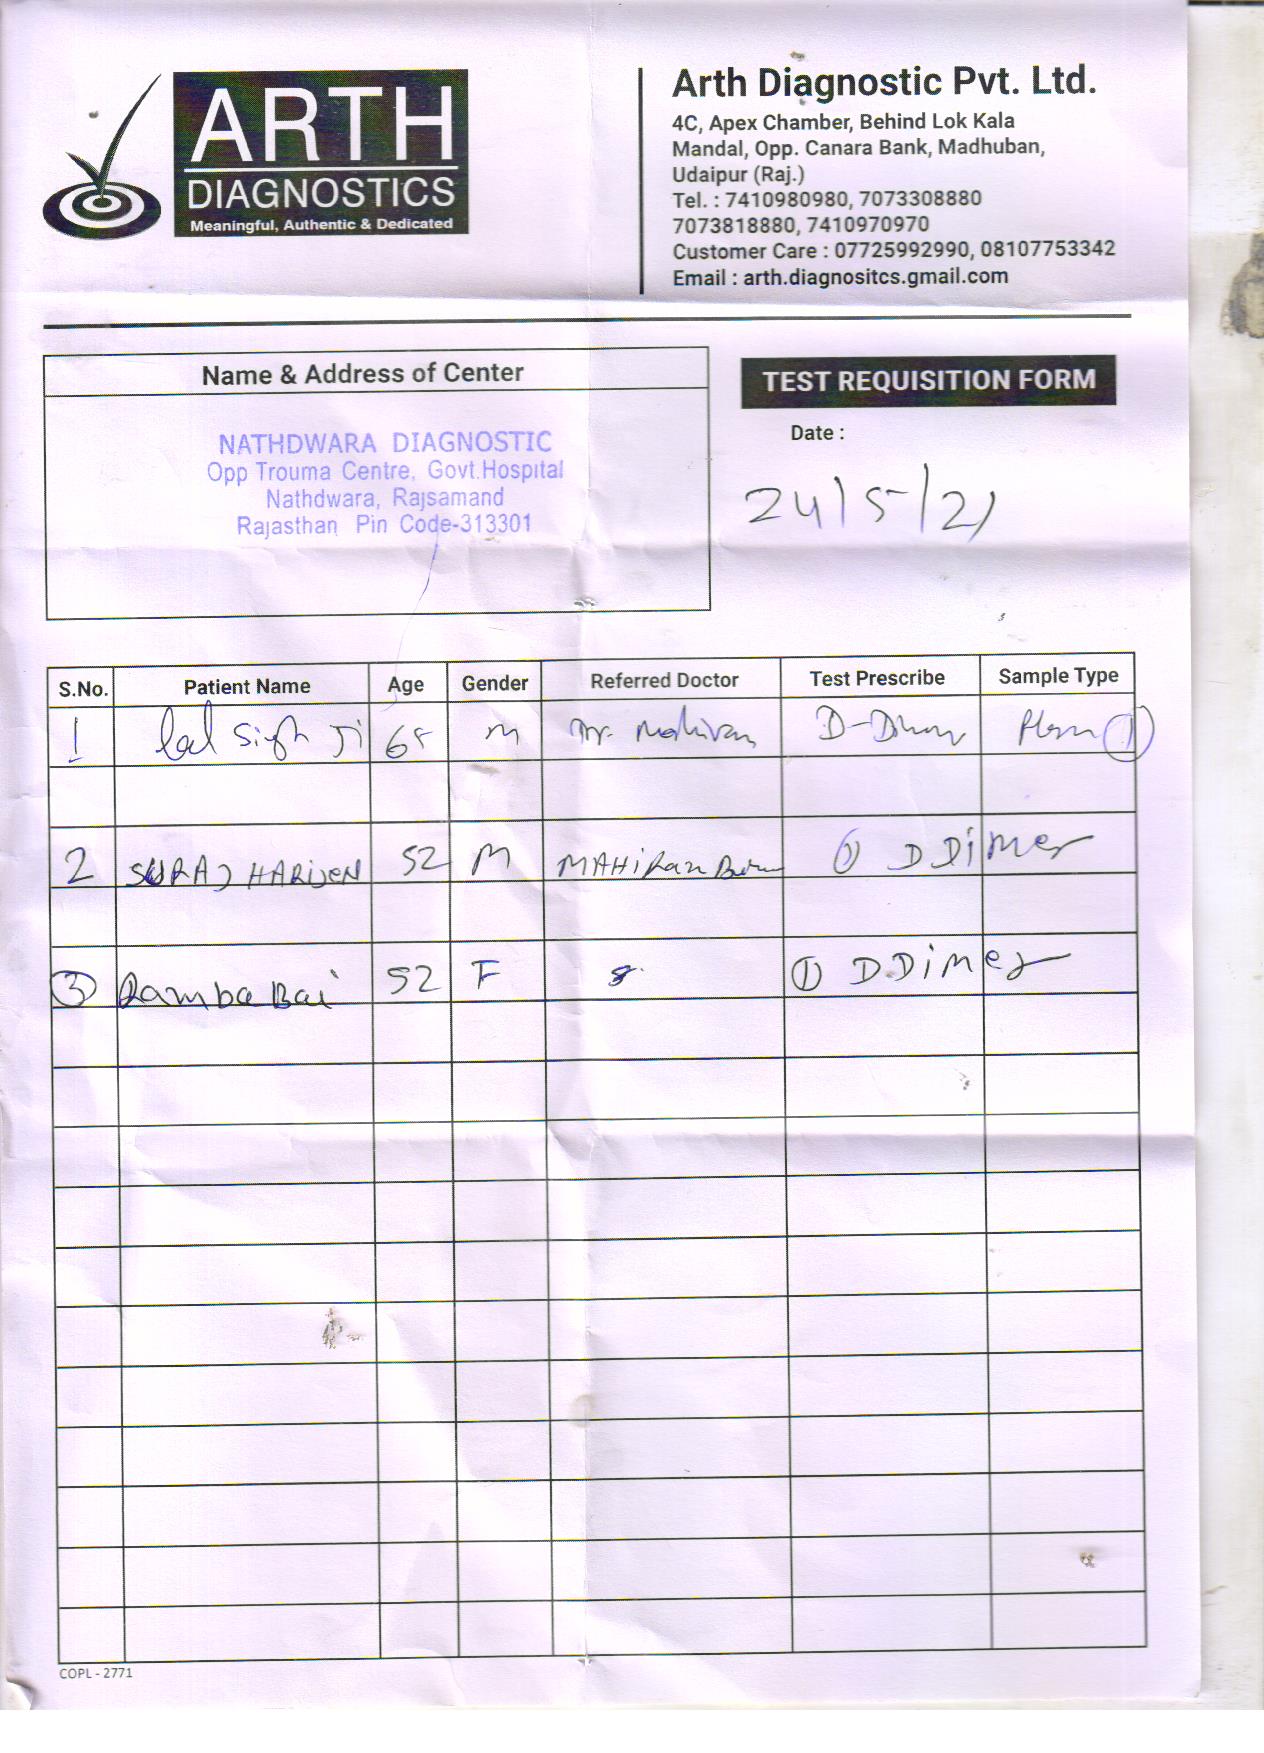 ARTH
DIAGNOSTICS
Meaningful, Authentic & Dedicated
Arth Diagnostic Pvt. Ltd.
4C, Apex Chamber, Behind Lok Kala
Mandal, Opp. Canara Bank, Madhuban,
Udaipur (Raj.)
Tel. : 7410980980, 7073308880
7073818880, 7410970970
Customer Care : 07725992990, 08107753342
Email : arth.diagnositcs.gmail.com
Name & Address of Center
NATHDWARA DIAGNOSTIC
Opp Trouma Centre, Govt.Hospital
Nathdwara, Rajsamand
Rajasthan Pin Code-313301
TEST REQUISITION FORM
Date :
24/5/21
S.No. Patient Name Age Gender Referred Doctor Test Prescribe Sample Type
1 Lal Singh Ji 65 M Dr. D-Dimer 1
2 SURAJ HARIJEN 52 M MAHiRan 1) D Dimer
3 Ramba Bai 52 F 1 D.Dimer
COPL - 2771